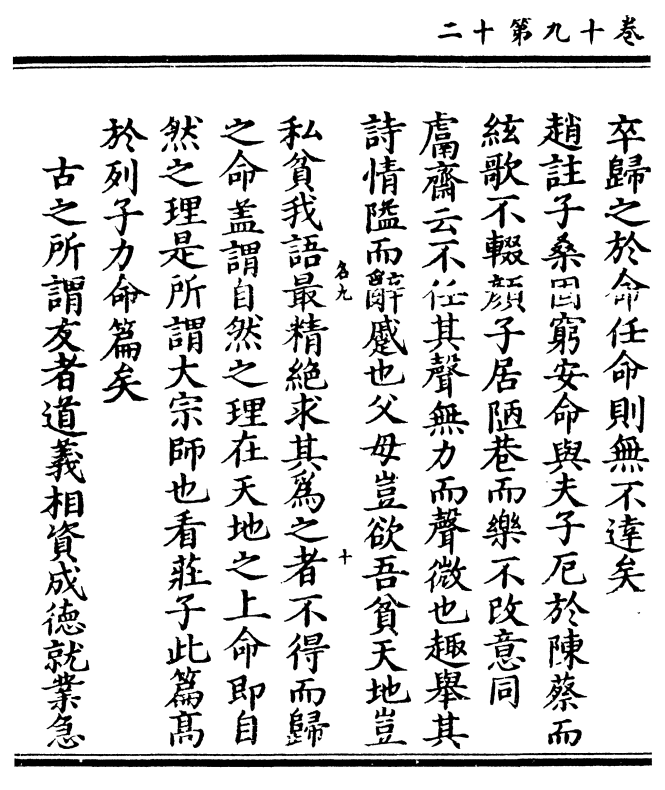 卷十九第十二
卒歸之於命任命則無不達矣
趙註子桑固窮安命與夫子厄於陳蔡而
絃歌不輟顔子居陋巷而樂不改意同
鬳齋云不任其聲無力而聲微也趣舉其
詩情隘而辭蹙也父母豈欲吾貧天地豈
名九
十
私貧我語最精絶求其爲之者不得而歸
之命盖謂自然之理在天地之上命即自
然之理是所謂大宗師也看莊子此篇髙
於列子力命篇矣
古之所謂友者道義相資成德就業急